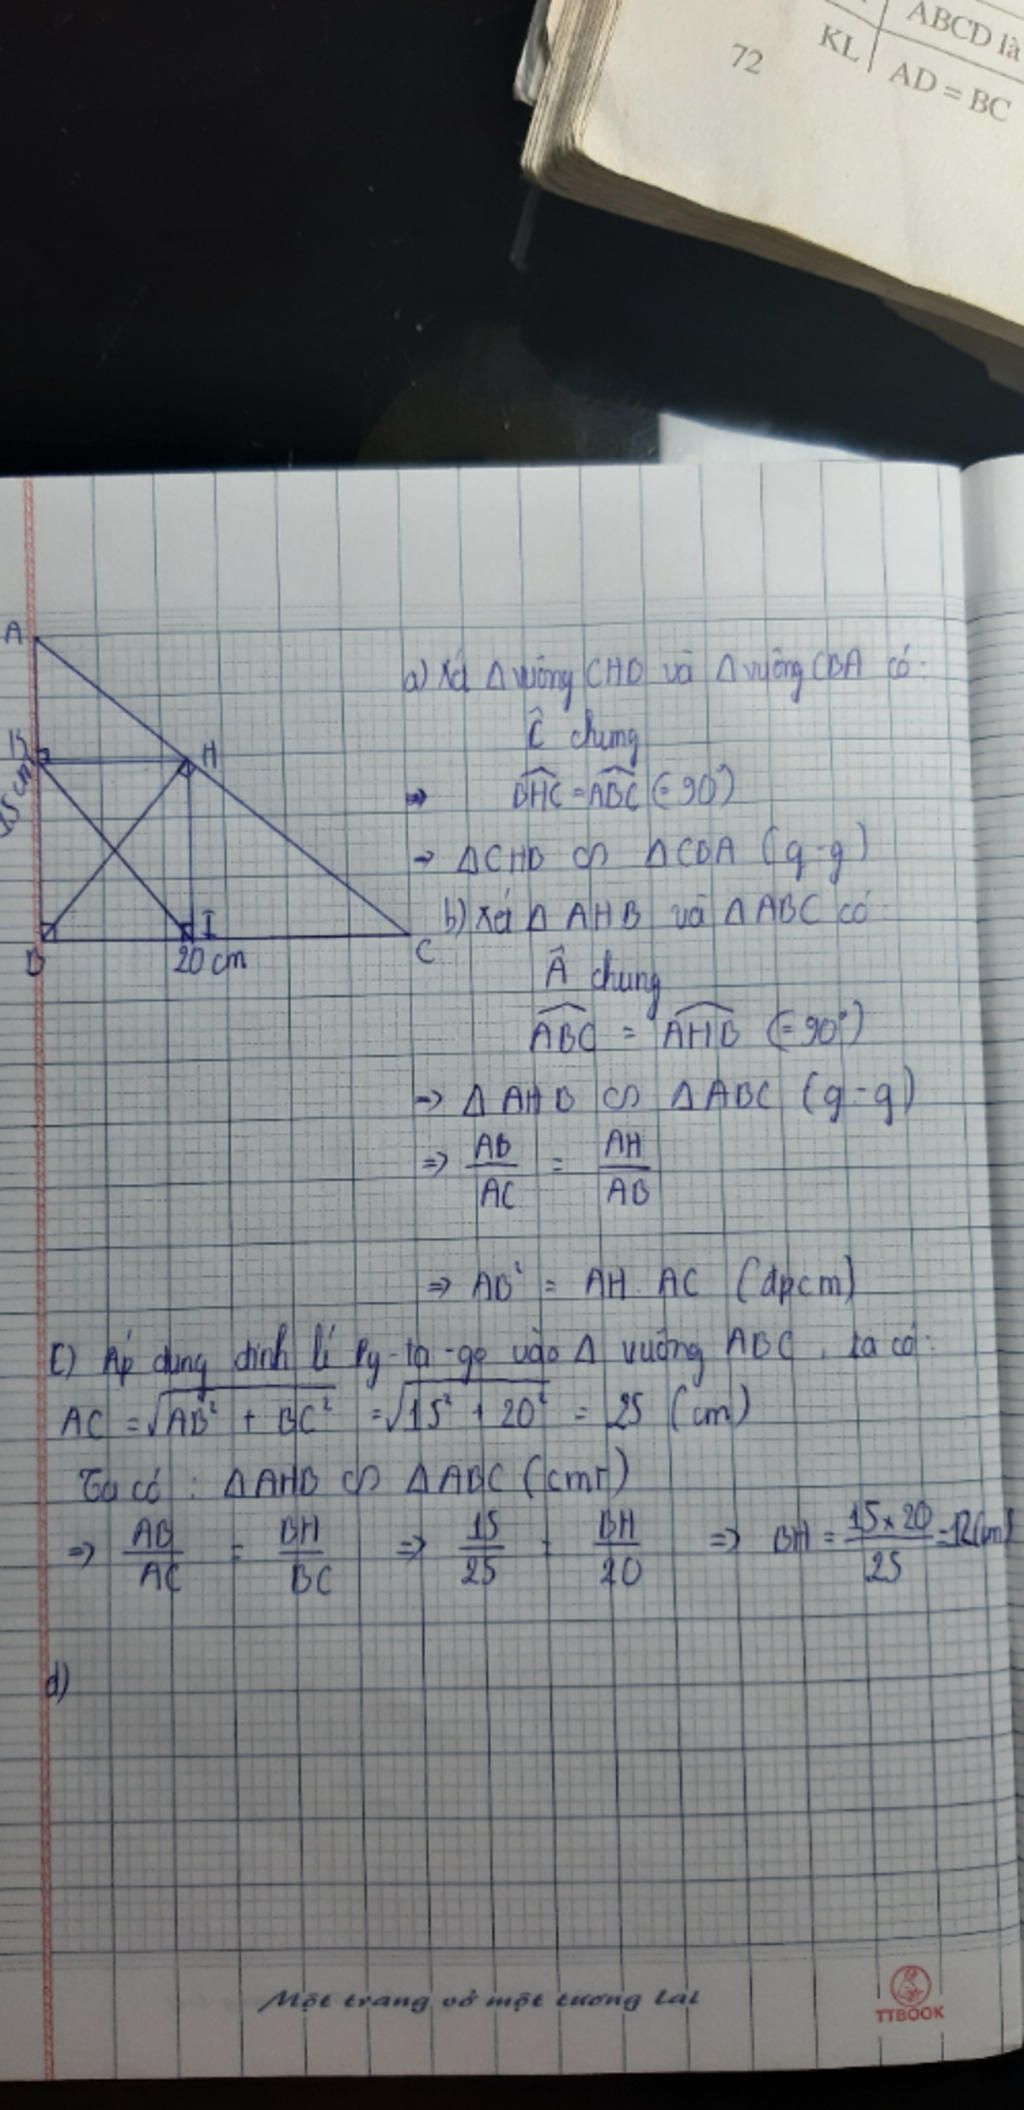 ABCD là
KL AD = BC
72
A
H
15 cm
I
B
20 cm
C
a) Xét Δ vuông CHB và Δ vuông CBA có:
Ĉ chung
⇒ BHC = ABC (= 90°)
⇒ ΔCHB ∽ ΔCBA (g-g)
b) Xét Δ AHB và Δ ABC có
Â chung
ABC = AHB (= 90°)
⇒ Δ AHB ∽ Δ ABC (g-g)
⇒ AB/AC = AH/AB
⇒ AB² = AH . AC (đpcm)
c) Áp dụng định lí Py-ta-go vào Δ vuông ABC, ta có:
AC = √AB² + BC² = √15² + 20² = 25 (cm)
Ta có : ΔAHB ∽ ΔABC (cmt)
⇒ AB/AC = BH/BC ⇒ 15/25 = BH/20 ⇒ BH = 15 x 20/25 = 12(cm)
d)
Một trang vở một tương lai
TTBOOK